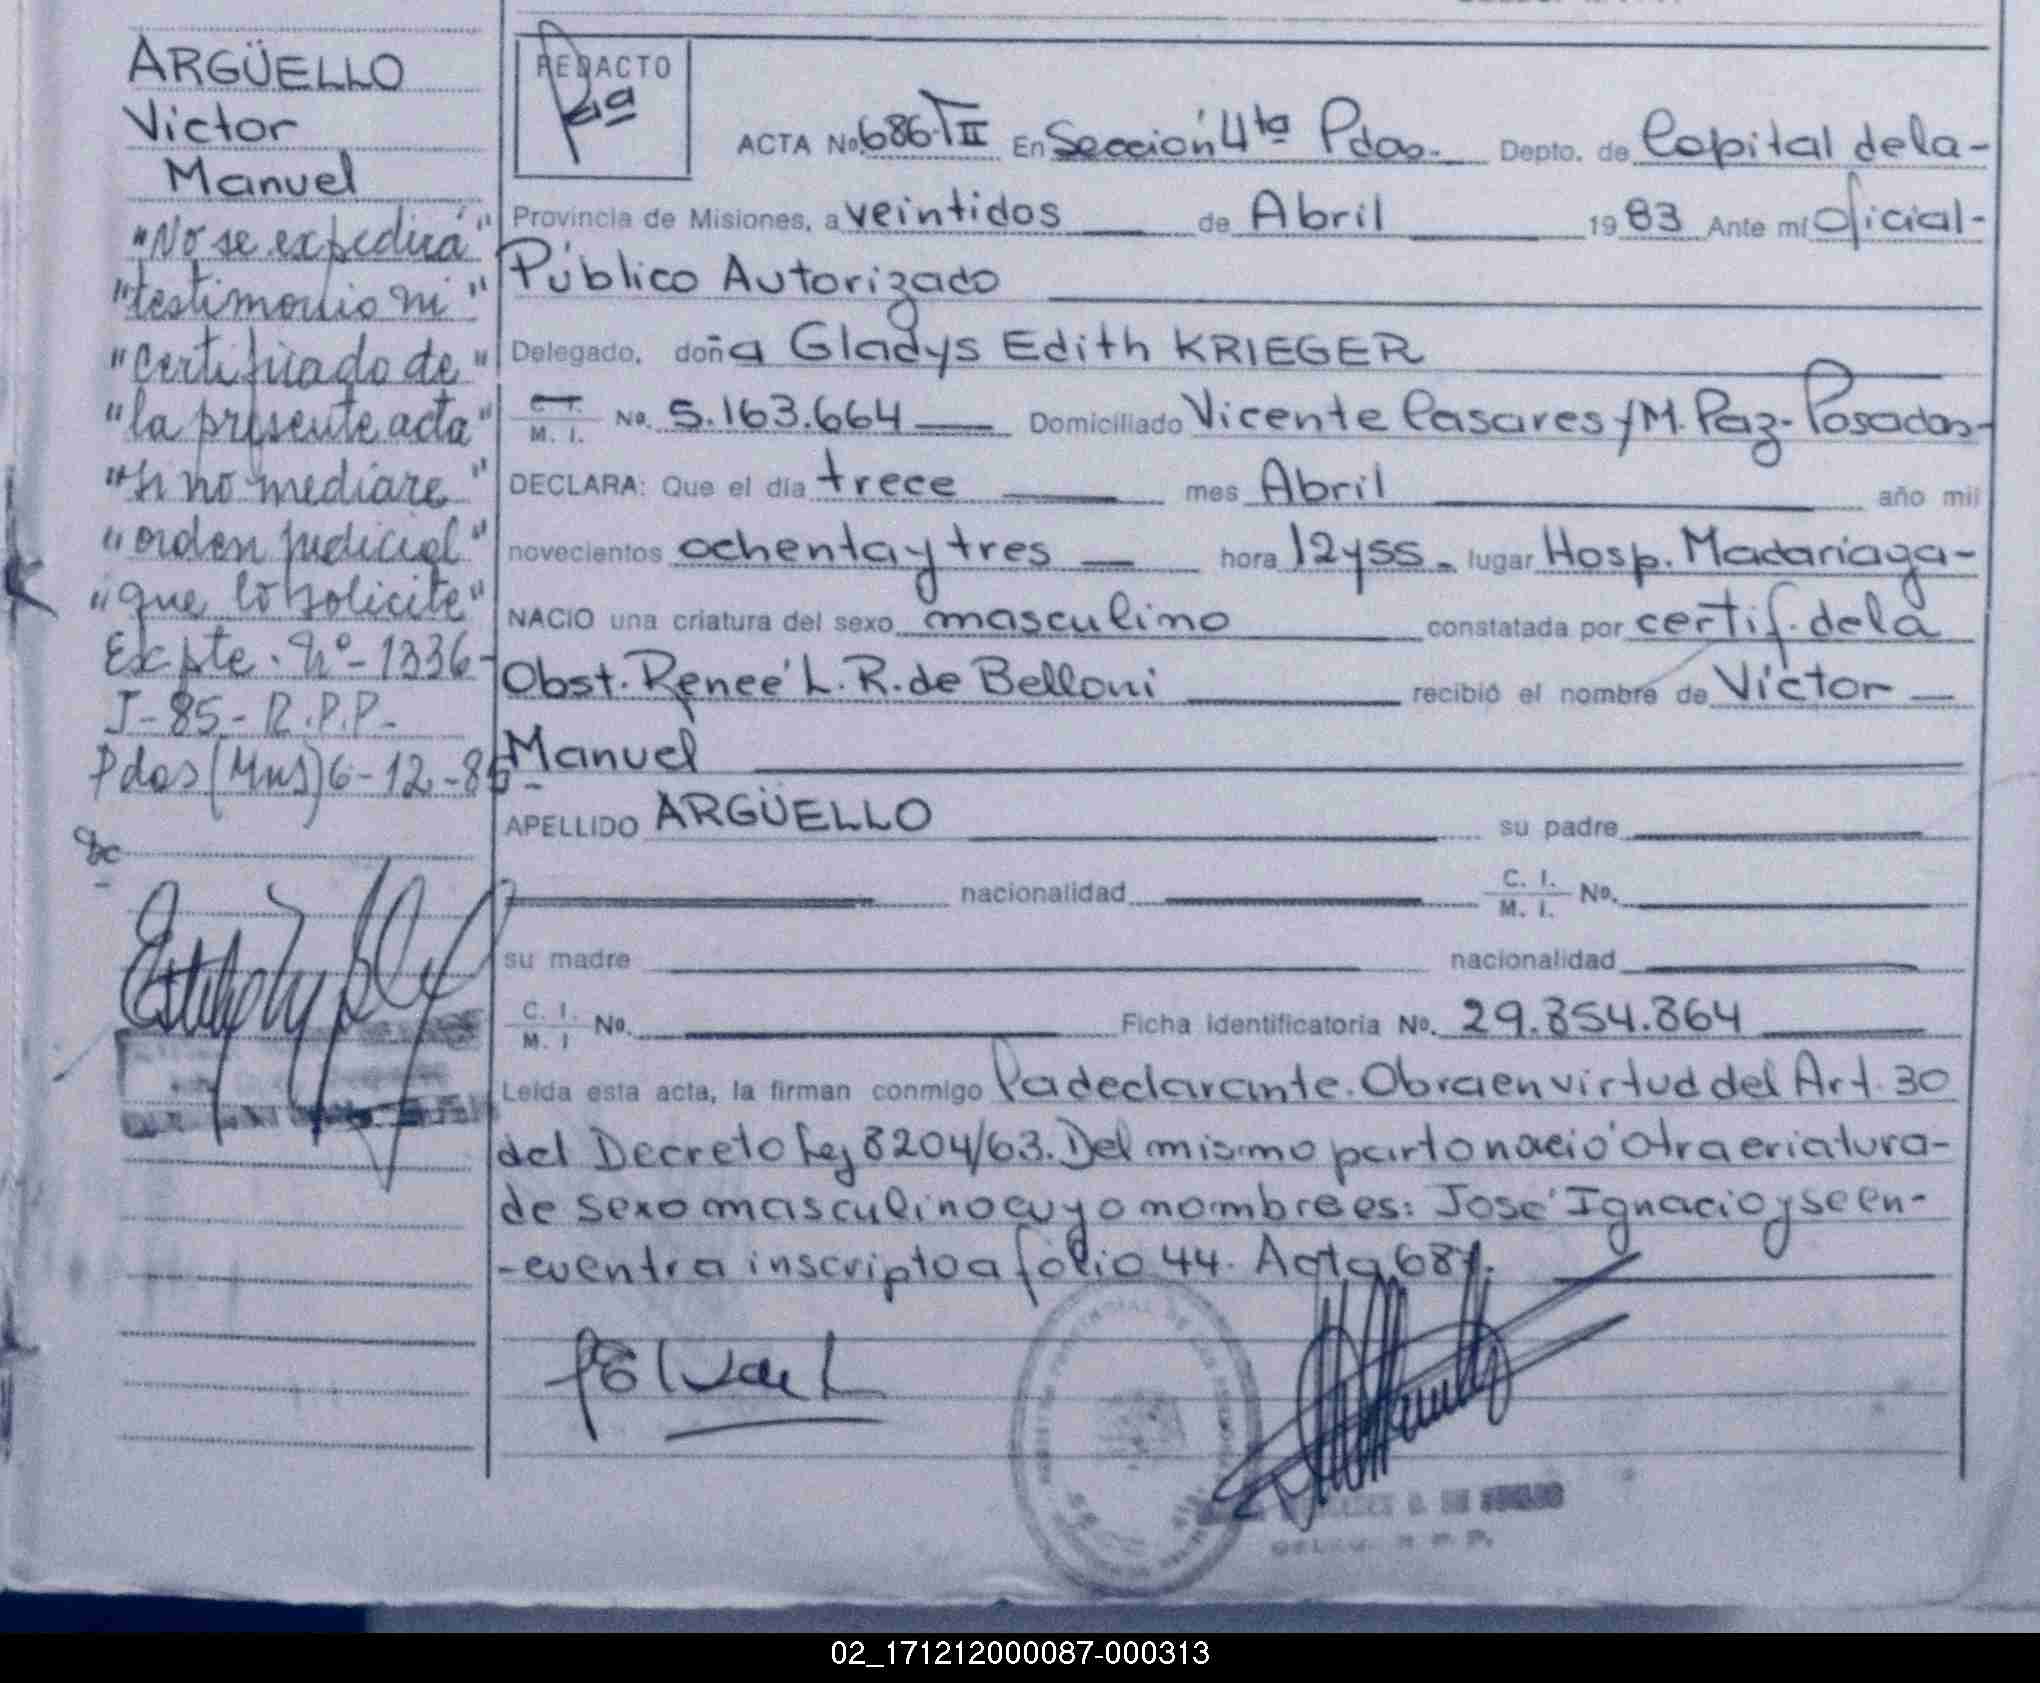 ARGÜELLO
Victor
Manuel
"No se expedirá"
"testimonio ni"
"certificado de"
"la presente acta"
"si no mediare"
"orden judicial"
"que lo solicite"
Expte. Nº-1336-
J-85-R.P.P.-
Pdas (Mns) 6-12-85-
REDACTO
ACTA No. 686-T II En Sección 4ta Pdas. Depto. de Capital de la-
Provincia de Misiones, a veintidos de Abril 1983 Ante mí Oficial-
Público Autorizado
Delegado, doña Gladys Edith KRIEGER
C. I.
M. I. No. 5.163.664 Domiciliado Vicente Casares y M. Paz- Posadas-
DECLARA: Que el día trece mes Abril año mil
novecientos ochenta y tres hora 12 y 55.- lugar Hosp. Madariaga-
NACIO una criatura del sexo masculino constatada por certif. de la
Obst. Reneé L. R. de Belloni recibió el nombre de Víctor
Manuel
APELLIDO ARGÜELLO su padre
nacionalidad C. I.
M. I. No.
su madre nacionalidad
C. I.
M. I No. Ficha Identificatoria No. 29.854.864
Leída esta acta, la firman conmigo La declarante. Obra en virtud del Art. 30
del Decreto Ley 8204/63. Del mismo parto nació otra criatura-
de sexo masculino cuyo nombre es: José Ignacio y se en-
-cuentra inscripto a folio 44. Acta 687.
DELEG. R P. P.
02_171212000087-000313